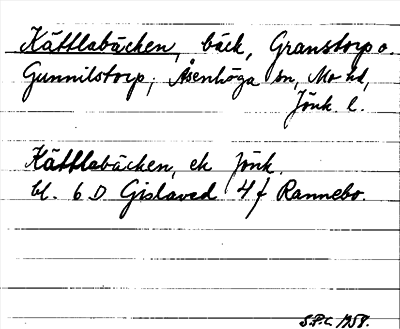 Kättlabäcken, bäck, Granstorp o.
Gunnilstorp, Åsenhöga sn, Mo hd,
Jönk. l.
Kättlabäcken, ek Jönk.
bl. 6 D Gislaved 4 f Rannebo.
S.P.C. 1958.